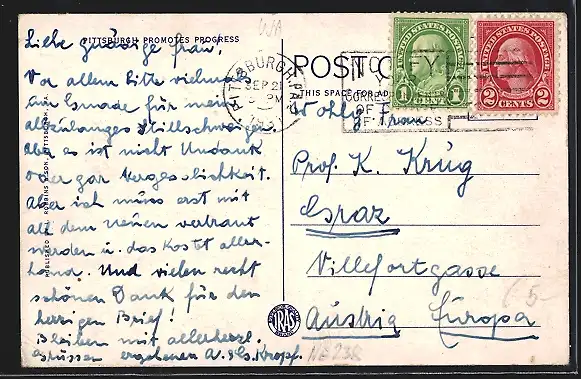 PITTSBURGH PROMOTES PROGRESS
Liebe gnädige Frau,
Vor allem bitte vielmals
um Gnade für mein
allzulanges Stillschweigen.
Aber es ist nicht Undank
oder gar Vergesslichkeit.
Aber ich muss erst mit
all dem neuen vertraut
werden u. das kostet aller-
hand. Und vielen recht
schönen Dank für den
herzigen Brief!
Bleiben mit allerherzl.
Grüssen ergebenen A. Kropf.
PITTSBURGH, PA.
SEP 2
PM
193
POST
THIS SPACE FOR AD
CORRE
OF
UNITED STATES POSTAGE
1 CENT 1
UNITED STATES POSTAGE
2 CENTS 2
Wohlg. Frau
Prof. K. Krug
Graz
Villefortgasse
Austria Europa
5-